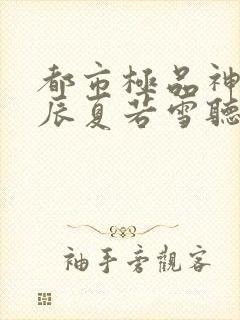 都市極品神
辰夏若雪聽
袖手旁觀客